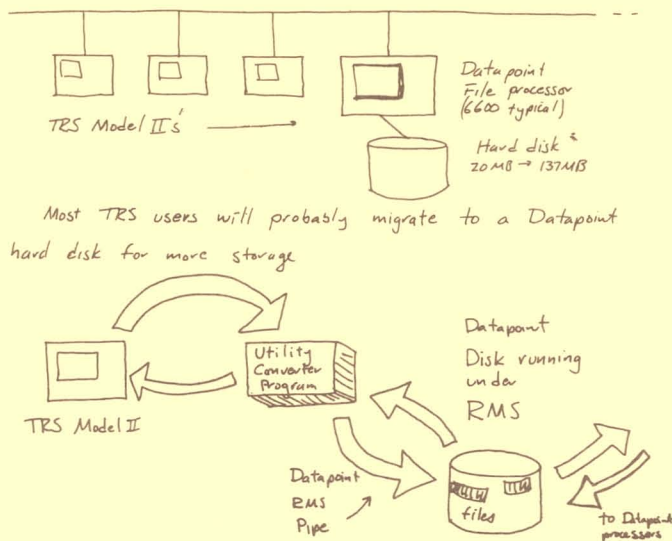 Datapoint
File processor
(6600 typical)
TRS Model II's
Hard disk
20MB → 137MB
Most TRS users will probably migrate to a Datapoint
hard disk for more storage
Utility
Converter
Program
TRS Model II
Datapoint
Disk running
under
RMS
Datapoint
RMS
Pipe
files
to Datapoint
processors